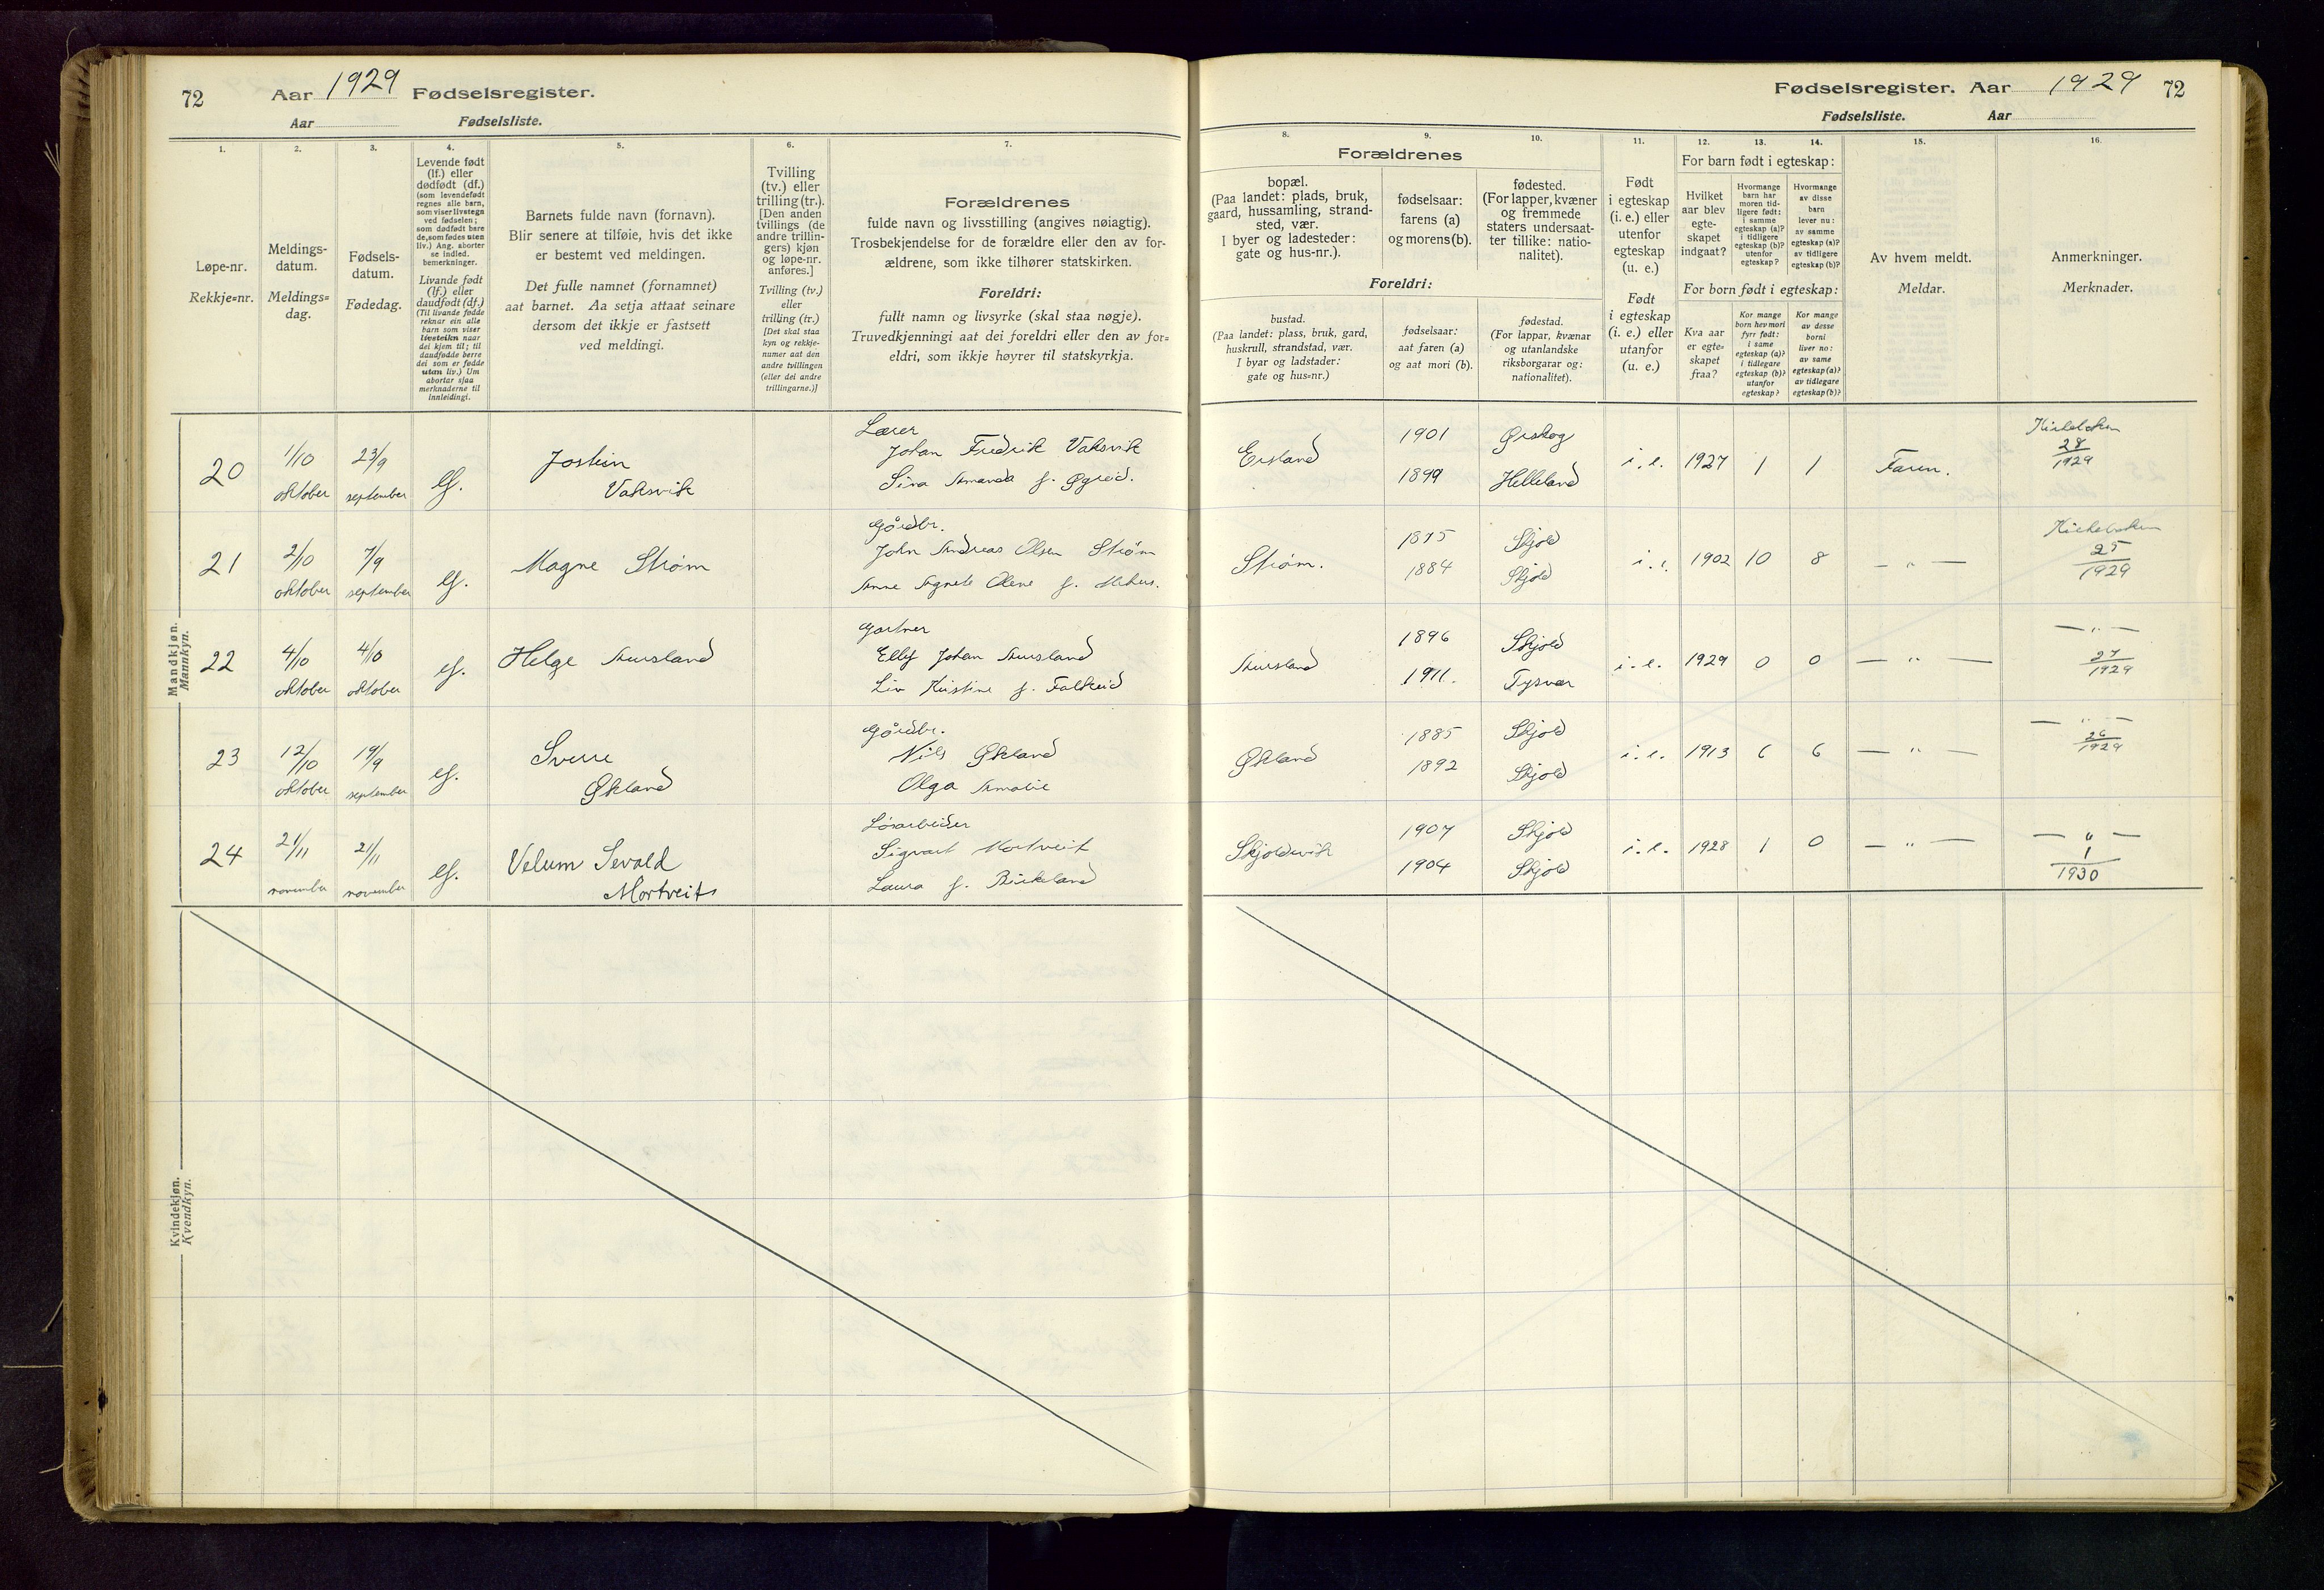 72 Aar 1929 Fødselsregister.
Aar Fødselsliste.
Fødselsregister. Aar 1929 72
Fødselsliste. Aar
1. 2. 3. 4. 5. 6. 7.
Løpe-nr.
Rekkje=nr.
Meldings-
datum.
Meldings=
dag.
Fødsels-
datum.
Fødedag.
Levende født
(lf.) eller
dødfødt (df.)
(som levendefødt
regnes alle barn,
som viser livstegn
ved fødselen;
som dødfødt bare
de, som fødes uten
liv.) Ang. aborter
se indled.
bemerkninger.
Livande født
(lf.) eller
daudfødt (df.)
(Til livande fødde
reknar ein alle
barn som viser
livsteikn naar
dei kjem til; til
daudfødde berre
dei som er fødde
utan liv.) Um
abortar sjaa
merknaderne til
innleidingi.
Barnets fulde navn (fornavn).
Blir senere at tilføie, hvis det ikke
er bestemt ved meldingen.
Det fulle namnet (fornamnet)
aat barnet. Aa setja attaat seinare
dersom det ikkje er fastsett
ved meldingi.
Tvilling
(tv.) eller
trilling (tr.).
[Den anden
tvillings (de
andre trillin-
gers) kjøn
og løpe-nr.
anføres.]
Tvilling (tv.)
eller
trilling (tr.)
[Det skal staa
kyn og rekkje-
numer aat den
andre tvillingen
(eller dei andre
trillingarne.)]
Forældrenes
fulde navn og livsstilling (angives nøiagtig).
Trosbekjendelse for de forældre eller den av for-
ældrene, som ikke tilhører statskirken.
Foreldri:
fullt namn og livsyrke (skal staa nøgje).
Truvedkjenningi aat dei foreldri eller den av for=
eldri, som ikkje høyrer til statskyrkja.
8. 9. 10. 11. 12. 13. 14. 15. 16.
Forældrenes
bopæl.
(Paa landet: plads, bruk,
gaard, hussamling, strand-
sted, vær.
I byer og ladesteder:
gate og hus-nr.).
fødselsaar:
farens (a)
og morens (b).
fødested.
(For lapper, kvæner
og fremmede
staters undersaat-
ter tillike: natio-
nalitet).
Foreldri:
bustad.
(Paa landet: plass, bruk, gard,
huskrull, strandstad, vær.
I byar og ladstader:
gate og hus=nr.)
fødselsaar:
aat faren (a)
og aat mori (b).
fødestad.
(For lappar, kvænar
og utanlandske
riksborgarar og:
nationalitet).
Født
i egteskap
(i. e.) eller
utenfor
egteskap
(u. e.)
Født
i egteskap
(i. e.) eller
utanfor
(u. e.)
For barn født i egteskap:
Hvilket
aar blev
egte-
skapet
indgaat?
Hvormange
barn har
moren tid-
ligere født:
i samme
egteskap (a)?
i tidligere
egteskap (b)?
utenfor
egteskap?
Hvormange
av disse
barn
lever nu:
av samme
egteskap (a)?
av tidligere
egteskap (b)?
For born født i egteskap:
Kva aar
er egte-
skapet
fraa?
Kor mange
born hev mori
fyrr født:
i same
egteskap (a)?
i tidlegare
egteskap (b)?
utanfor
egteskap?
Kor mange
av desse
borni
liver no:
av same
egteskap (a)?
av tidlegare
egteskap (b)?
Av hvem meldt.
Meldar.
Anmerkninger.
Merknader.
Mandkjøn.
Mannkyn.
20 1/10 oktober 23/9 september lf. Jostein Vaksvik
Lærer
Johan Fredrik Vaksvik
Sina Amanda f. Øgreid.
Eisland 1901 Ørskog i. e. 1927 1 1 Faren. Kirkeboken 28/1929
1899 Helleland
21 2/10 oktober 7/9 september lf. Magne Strøm
Gårdbr.
John Andreas Olsen Strøm
Anne Agnete Olene f.
Strøm. 1875 Skjold i. e. 1902 10 8 — " — Kirkeboken 25/1929
1884 Skjold
22 4/10 oktober 4/10 oktober lf. Helge Aursland
Gartner
Ellef Johan Aursland
Liv Kristine f. Falkeid
Aursland 1896 Skjold i. e. 1929 0 0 — " — — " — 27/1929
1911. Tysvær
23 12/10 oktober 19/9 september lf. Sverre Økland
Gårdbr.
Nils Økland
Olga Amalie
Økland 1885 Skjold i. e. 1913 6 6 — " — — " — 26/1929
1892 Skjold
24 21/11 november 21/11 november lf. Velum Sevald Mortveit
Løsarbeider
Sigvart Mortveit
Laura f. Birkeland
Skjoldevik 1907 Skjold i. e. 1928 1 0 — " — — " — 1/1930
1904 Skjold
Kvindekjøn.
Kvendkyn.